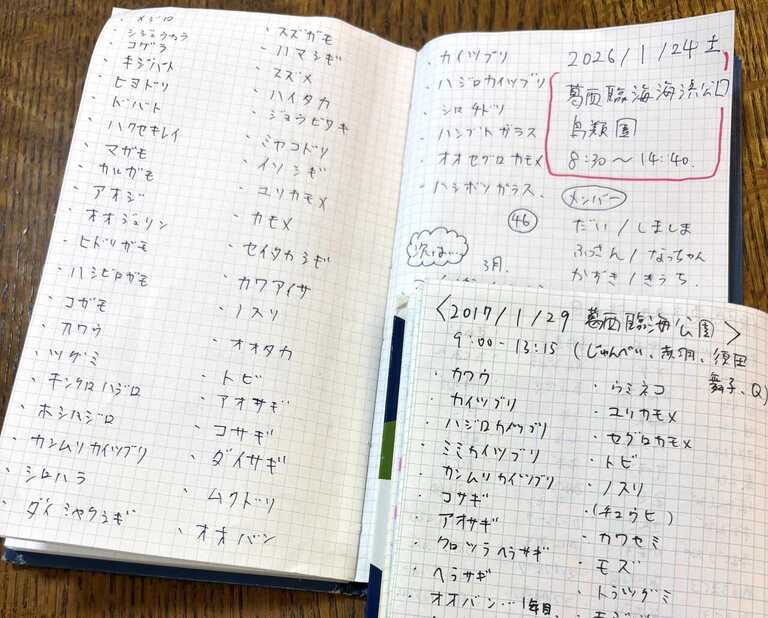 ・メジロ
・シジュウカラ
・コゲラ
・キジバト
・ヒヨドリ
・ドバト
・ハクセキレイ
・マガモ
・カルガモ
・アオジ
・オオジュリン
・ヒドリガモ
・ハシビロガモ
・コガモ
・カワウ
・ツグミ
・キンクロハジロ
・ホシハジロ
・カンムリカイツブリ
・シロハラ
・ダイシャクシギ
・スズガモ
・ハマシギ
・スズメ
・ハイタカ
・ジョウビタキ
・ミヤコドリ
・イソシギ
・ユリカモメ
・カモメ
・セイタカシギ
・カワアイサ
・ノスリ
・オオタカ
・トビ
・アオサギ
・コサギ
・ダイサギ
・ムクドリ
・オオバン
・カイツブリ
・ハジロカイツブリ
・シロチドリ
・ハシブトガラス
・オオセグロカモメ
・ハシボソガラス.
46
次は…
3月.
2026/1/24土
葛西臨海海浜公園
鳥類園
8:30〜14:40.
メンバー
だい/しましま
ふっさん/なっちゃん
かずき/きうち.
<2017/1/29 葛西臨海公園>
9:00-13:15 (じゅんぺい、赤羽、須田
舞子、Q)
・カワウ
・カイツブリ
・ハジロカイツブリ
・ミミカイツブリ
・カンムリカイツブリ
・コサギ
・アオサギ
・クロツラヘラサギ
・ヘラサギ
・オオバン…1年目
・ウミネコ
・ユリカモメ
・セグロカモメ
・トビ
・ノスリ
・(チュウヒ)
・カワセミ
・モズ
・トラツグミ